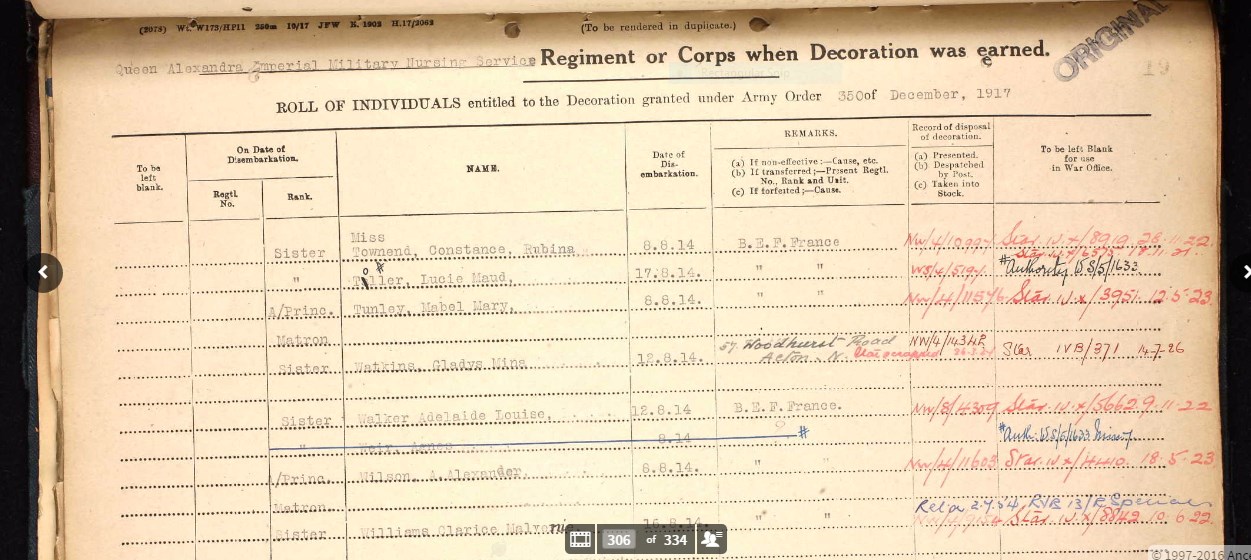 (2078) Wt. W173/HP11 250m 10/17 JFW E. 1902 H.17/2062
(To be rendered in duplicate.)
ORIGINAL
Queen Alexandra Imperial Military Nursing Service Regiment or Corps when Decoration was earned.
19
ROLL OF INDIVIDUALS entitled to the Decoration granted under Army Order 350 of December, 1917
To be left blank.
On Date of Disembarkation.
Regtl. No.
Rank.
NAME.
Date of Dis-embarkation.
REMARKS.
(a) If non-effective:—Cause, etc.
(b) If transferred:—Present Regtl. No., Rank and Unit.
(c) If forfeited:—Cause.
Record of disposal of decoration.
(a) Presented.
(b) Despatched by Post.
(c) Taken into Stock.
To be left Blank for use in War Office.
Miss
Sister Townend, Constance, Rubina 8.8.14 B.E.F. France Star IV X/8919
" Tiller, Lucie Maud, 17.8.14. " " #Authority WS/5/1633
A/Princ. Tunley, Mabel Mary, 8.8.14. " " Star IV X/3951 12.5.23
Matron
57 Woodhurst Road NW/4/
Sister Watkins, Gladys Mina 12.8.14. Acton. Star scrapped Star IVB/371 14.7.26
Sister Walker Adelaide Louise, 12.8.14 B.E.F. France. Star IV X/5662 9.11.22
" Weir, Agnes 8.14 # #Auth: WS/5/1633
A/Princ. Wilson, A. Alexander. 8.8.14. " " NW/4/11603 Star IV X/ 18.5.23
Matron
Sister Williams Clarice Malvome 16.8.14. " " Star IV X/8842 10.6.22
306 of 334
© 1997-2016 Ance